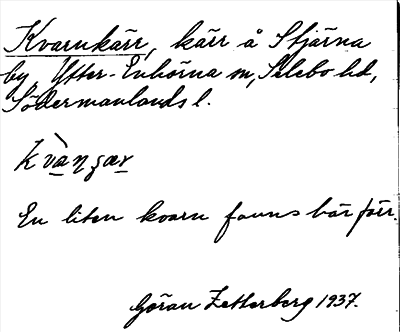 Kvarnkärr, kärr å Stjärna
by Ytter-Enhörna sn, Selebo hd,
Södermanlands l.
En liten kvarn fanns här förr.
Göran Zetterberg 1937.